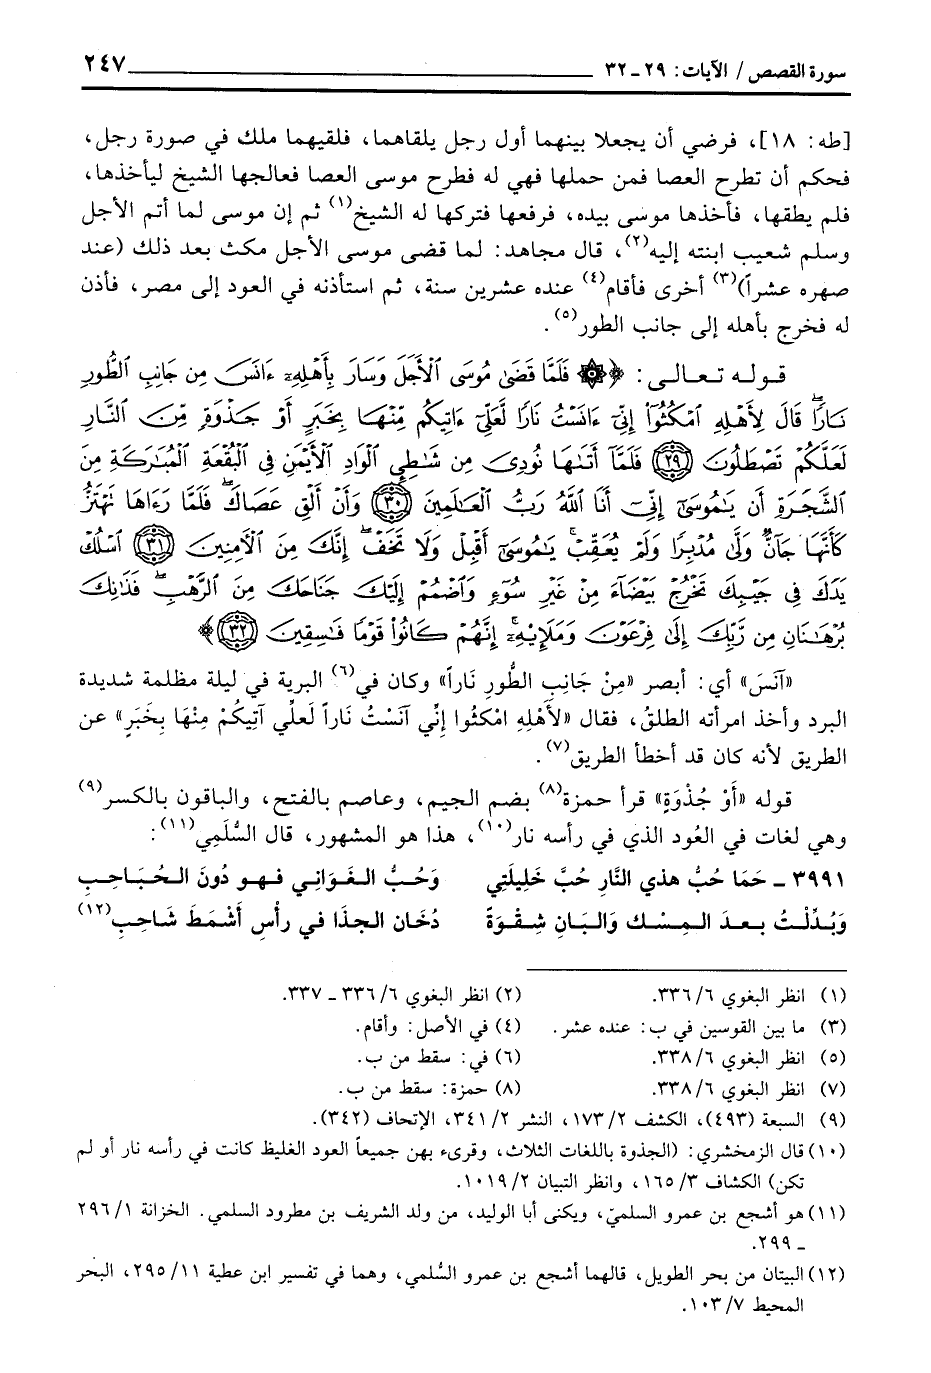 سورة القصص / الآيات: ٢٩ ـ ٣٢ ٢٤٧
[طه: ١٨]، فرضي أن يجعلا بينهما أول رجل يلقاهما، فلقيهما ملك في صورة رجل،
فحكم أن تطرح العصا فمن حملها فهي له فطرح موسى العصا فعالجها الشيخ ليأخذها،
فلم يطقها، فأخذها موسى بيده، فرفعها فتركها له الشيخ(١) ثم إن موسى لما أتم الأجل
وسلم شعيب ابنته إليه(٢)، قال مجاهد: لما قضى موسى الأجل مكث بعد ذلك (عند
صهره عشراً)(٣) أخرى فأقام(٤) عنده عشرين سنة، ثم استأذنه في العود إلى مصر، فأذن
له فخرج بأهله إلى جانب الطور(٥).
قوله تعالى: ﴿۞ فَلَمَّا قَضَىٰ مُوسَى ٱلۡأَجَلَ وَسَارَ بِأَهۡلِهِۦٓ ءَانَسَ مِن جَانِبِ ٱلطُّورِ
نَارٗاۖ قَالَ لِأَهۡلِهِ ٱمۡكُثُوٓاْ إِنِّيٓ ءَانَسۡتُ نَارٗا لَّعَلِّيٓ ءَاتِيكُم مِّنۡهَا بِخَبَرٍ أَوۡ جَذۡوَةٖ مِّنَ ٱلنَّارِ
لَعَلَّكُمۡ تَصۡطَلُونَ ٢٩ فَلَمَّآ أَتَىٰهَا نُودِيَ مِن شَٰطِيِٕ ٱلۡوَادِ ٱلۡأَيۡمَنِ فِي ٱلۡبُقۡعَةِ ٱلۡمُبَٰرَكَةِ مِنَ
ٱلشَّجَرَةِ أَن يَٰمُوسَىٰٓ إِنِّيٓ أَنَا ٱللَّهُ رَبُّ ٱلۡعَٰلَمِينَ ٣٠ وَأَنۡ أَلۡقِ عَصَاكَۖ فَلَمَّا رَءَاهَا تَهۡتَزُّ
كَأَنَّهَا جَآنّٞ وَلَّىٰ مُدۡبِرٗا وَلَمۡ يُعَقِّبۡۚ يَٰمُوسَىٰٓ أَقۡبِلۡ وَلَا تَخَفۡۖ إِنَّكَ مِنَ ٱلۡأٓمِنِينَ ٣١ ٱسۡلُكۡ
يَدَكَ فِي جَيۡبِكَ تَخۡرُجۡ بَيۡضَآءَ مِنۡ غَيۡرِ سُوٓءٖ وَٱضۡمُمۡ إِلَيۡكَ جَنَاحَكَ مِنَ ٱلرَّهۡبِۖ فَذَٰنِكَ
بُرۡهَٰنَانِ مِن رَّبِّكَ إِلَىٰ فِرۡعَوۡنَ وَمَلَإِيْهِۦٓۚ إِنَّهُمۡ كَانُواْ قَوۡمٗا فَٰسِقِينَ ٣٢﴾
«آنَسَ» أي: أبصر «مِنْ جَانِبِ الطُّورِ نَاراً» وكان في(٦) البرية في ليلة مظلمة شديدة
البرد وأخذ امرأته الطلقُ، فقال «لأَهْلِهِ امْكثُوا إِنِّي آنَسْتُ نَاراً لَعلِّي آتِيكُمْ مِنْهَا بِخَبَرٍ» عن
الطريق لأنه كان قد أخطأ الطريق(٧).
قوله «أَوْ جُذْوَةٍ» قرأ حمزة(٨) بضم الجيم، وعاصم بالفتح، والباقون بالكسر(٩)
وهي لغات في العُود الذي في رأسه نار(١٠)، هذا هو المشهور، قال السُّلَمِي(١١):
٣٩٩١ ـ حَمَا حُبُّ هذي النَّارِ حُبَّ خَلِيلَتِي وَحُبُّ الغَوَانِي فهو دُونَ الحُبَاحِبِ
وَبُدِّلْتُ بعدَ المِسْك وَالبَانِ شِقْوَةً دُخَان الجذَا في رأْسِ أَشْمَطَ شَاحِبِ(١٢)
(١) انظر البغوي ٦/٣٣٦. (٢) انظر البغوي ٦/٣٣٦ ـ ٣٣٧.
(٣) ما بين القوسين في ب: عنده عشر. (٤) في الأصل: وأقام.
(٥) انظر البغوي ٦/٣٣٨. (٦) في: سقط من ب.
(٧) انظر البغوي ٦/٣٣٨. (٨) حمزة: سقط من ب.
(٩) السبعة (٤٩٣)، الكشف ٢/١٧٣، النشر ٢/٣٤١، الإتحاف (٣٤٢).
(١٠) قال الزمخشري: (الجذوة باللغات الثلاث، وقرىء بهن جميعاً العود الغليظ كانت في رأسه نار أو لم
تكن) الكشاف ٣/١٦٥، وانظر التبيان ٢/١٠١٩.
(١١) هو أشجع بن عمرو السلميّ، ويكنى أبا الوليد، من ولد الشريف بن مطرود السلمي. الخزانة ١/٢٩٦
ـ ٢٩٩.
(١٢) البيتان من بحر الطويل، قالهما أشجع بن عمرو السُّلمي، وهما في تفسير ابن عطية ١١/٢٩٥، البحر
المحيط ٧/١٠٣.